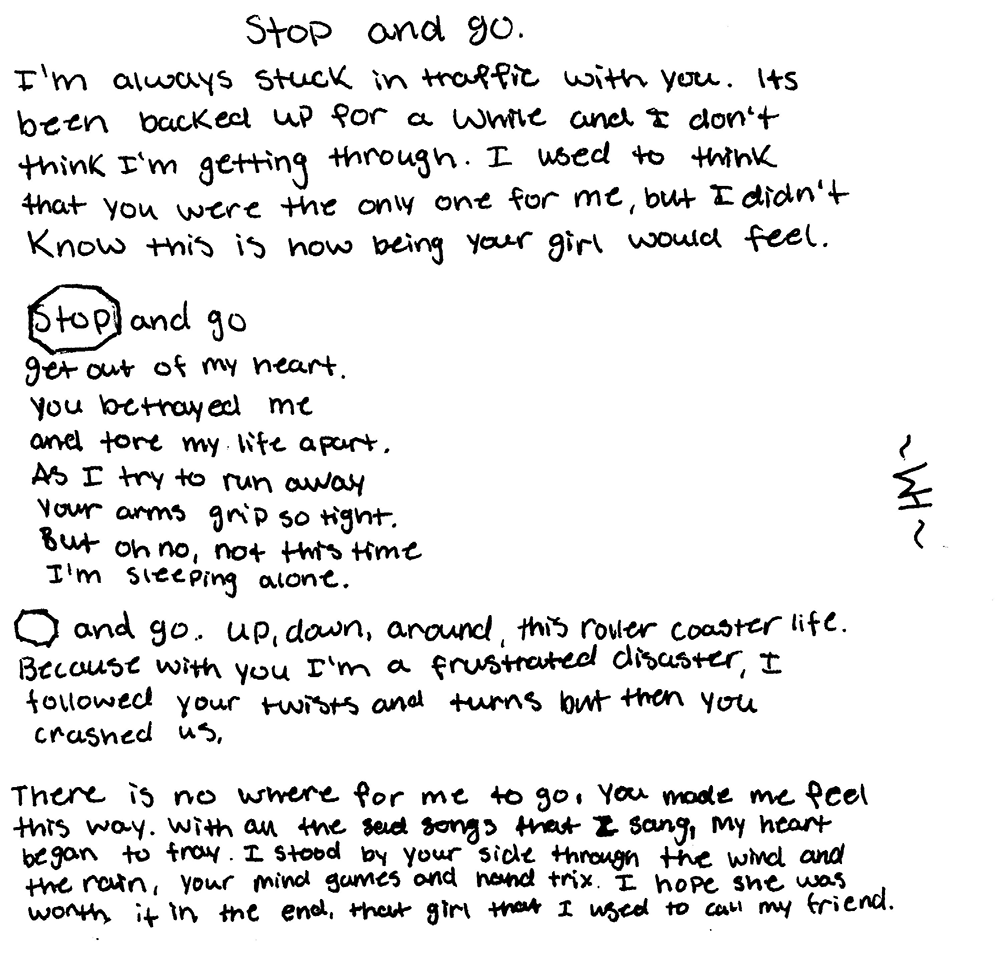 Stop and go.
I'm always stuck in traffic with you. Its
been backed up for a while and I don't
think I'm getting through. I used to think
that you were the only one for me, but I didn't
Know this is how being your girl would feel.
Stop and go
get out of my heart.
you betrayed me
and tore my life apart.
As I try to run away
Your arms grip so tight.
But oh no, not this time
I'm sleeping alone.
and go. up, down, around, this roller coaster life.
Because with you I'm a frustrated disaster, I
followed your twists and turns but then you
crashed us.
There is no where for me to go. You made me feel
this way. With all the sad songs that I sang, My heart
began to fray. I stood by your side through the wind and
the rain, your mind games and hand trix. I hope she was
worth it in the end, that girl that I used to call my friend.